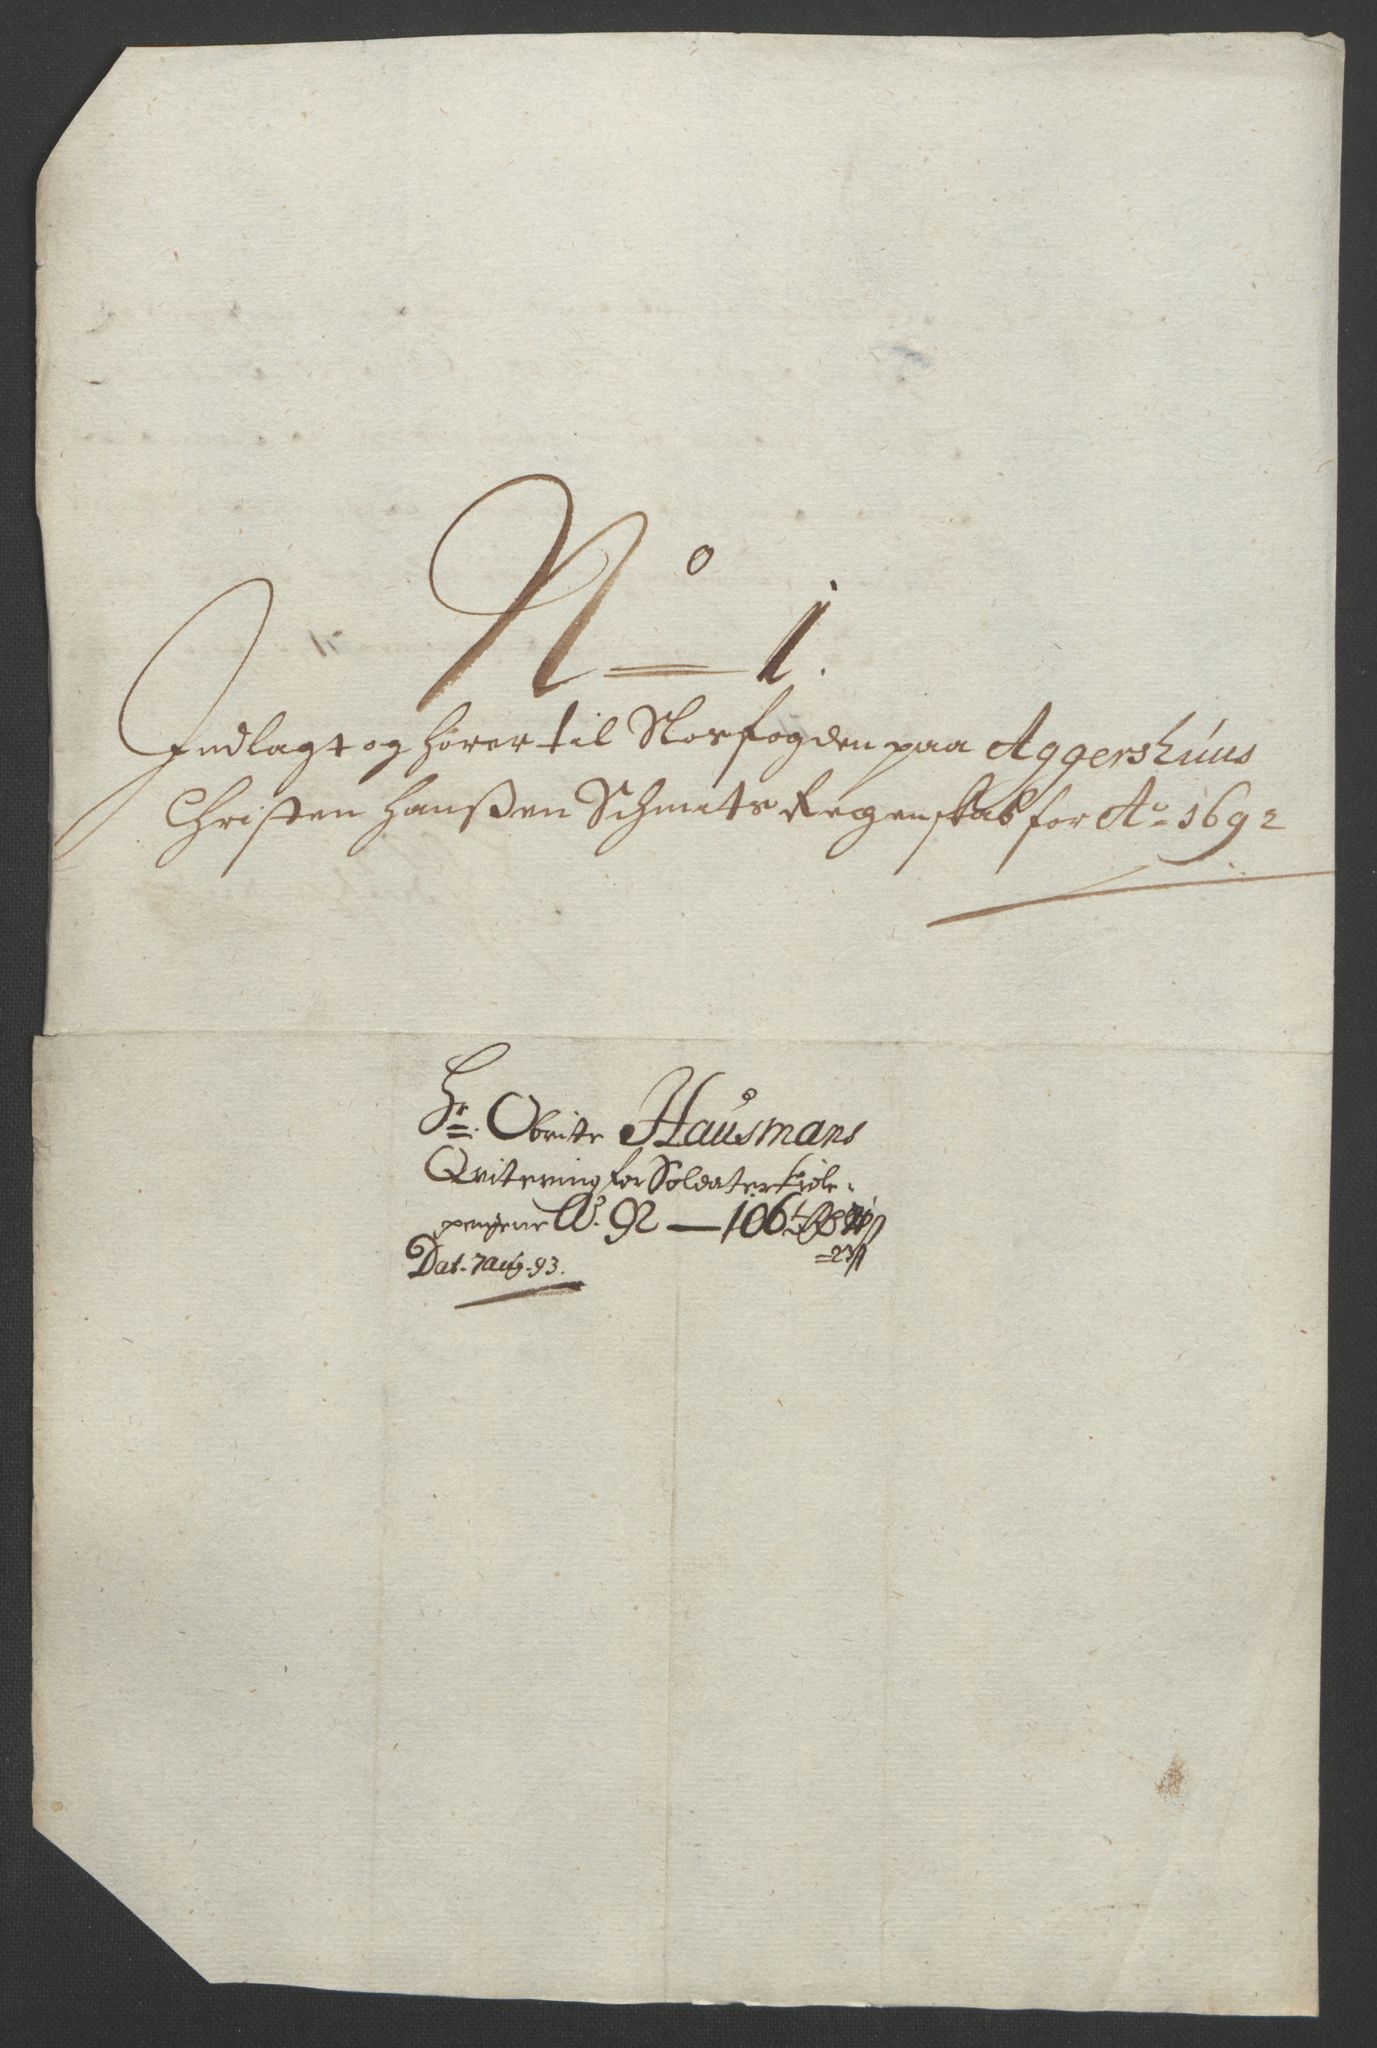 No 1.
Indlagt og hører til Slosfogden paa Aggershuus
Christen Hanßen Schmits Regenskab for Ao 1692
Hr. Obriste Hausmans
Qvitering for Soldater kiole-
pengene Ao. 92 — 106
Dat. 7 Aug. 93.
23 ß